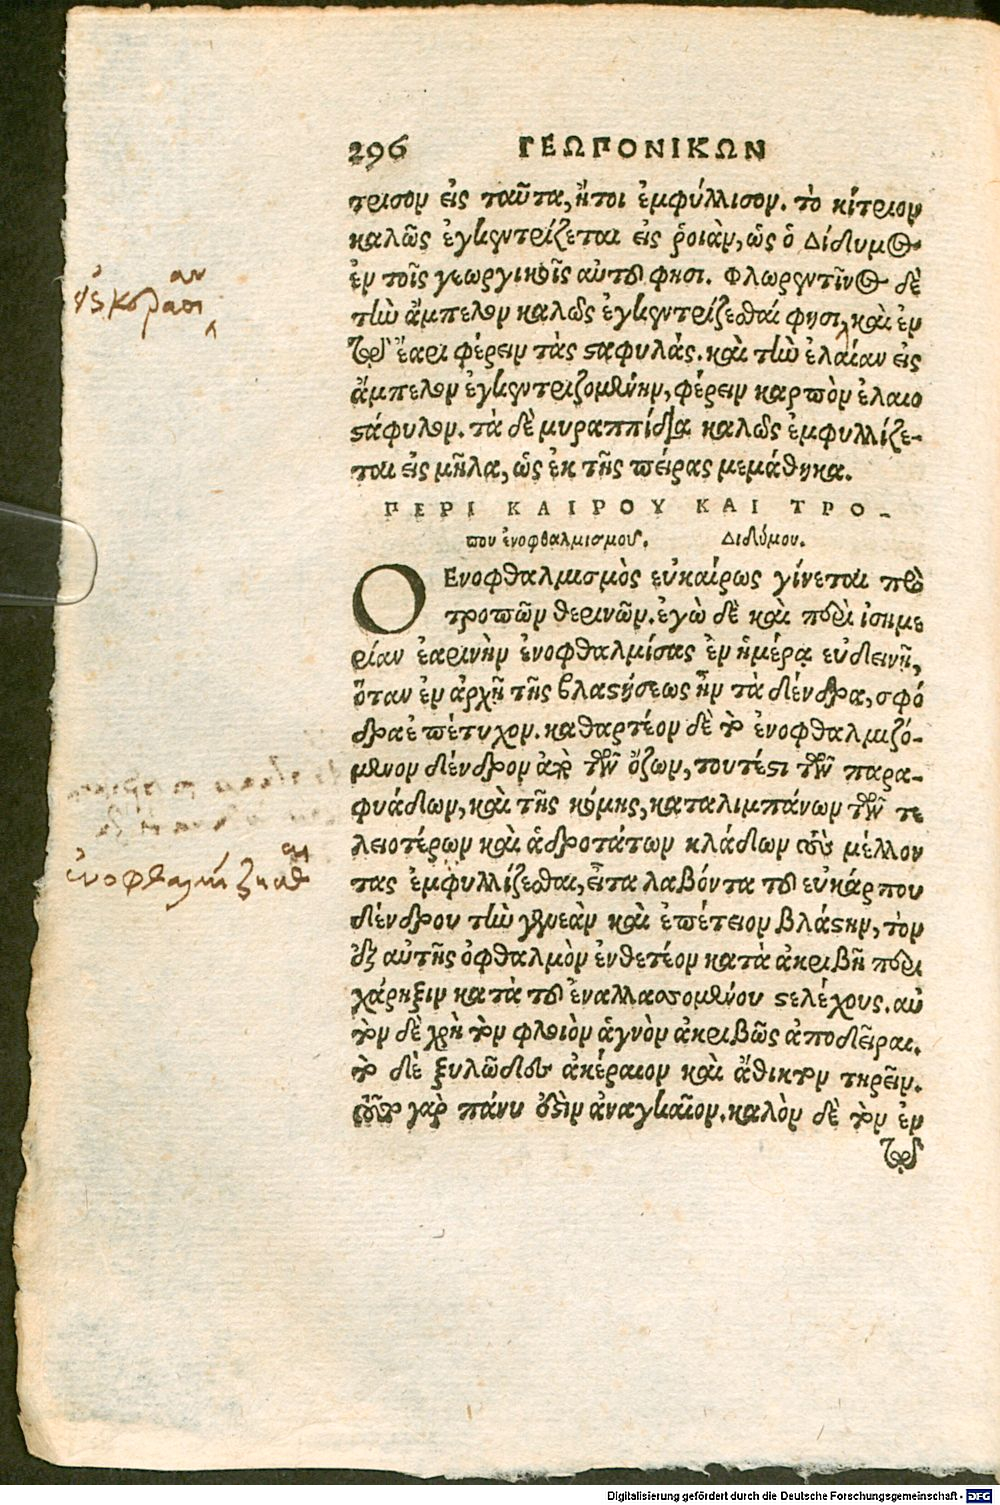 296 ΓΕΩΠΟΝΙΚΩΝ
τρισον εἰς ταῦτα, ἤτοι ἐμφύλλισον. τὸ κίτριον
καλῶς ἐγκεντρίζεται εἰς ῥοιὰν, ὡς ὁ Δίδυμος
ἐν τοῖς γεωργικοῖς αὐτοῦ φησι. Φλωρεντῖνος δὲ
τὴν ἄμπελον καλῶς ἐγκεντρίζεσθαί φησι, καὶ ἐν
τῷ ἔαρι φέρειν τὰς σταφυλάς. καὶ τὴν ἐλαίαν εἰς
ἄμπελον ἐγκεντριζομένην, φέρειν καρπὸν ἐλαιο
στάφυλον. τὰ δὲ μυραππίδια καλῶς ἐμφυλλίζε-
ται εἰς μῆλα, ὡς ἐκ τῆς πείρας μεμάθηκα.
ΠΕΡΙ ΚΑΙΡΟΥ ΚΑΙ ΤΡΟ-
που ἐνοφθαλμισμοῦ. Διδύμου.
Ο Ενοφθαλμισμὸς εὐκαίρως γίνεται πρὸ
τροπῶν θερινῶν. ἐγὼ δὲ καὶ περὶ ἰσημε
ρίαν ἐαρινὴν ἐνοφθαλμίσας ἐν ἡμέρᾳ εὐδιεινῇ,
ὅταν ἐν ἀρχῇ τῆς βλαστήσεως ἦν τὰ δένδρα, σφό
δρα ἐπέτυχον. καθαρτέον δὲ τὸ ἐνοφθαλμιζό-
μενον δένδρον ἀπὸ τῶν ὄζων, τουτέστι τῶν παρα-
φυάδων, καὶ τῆς κόμης, καταλιμπάνων τῶν τε
λειοτέρων καὶ ἁδροτάτων κλάδων τοὺς μέλλον
τας ἐμφυλλίζεσθαι, εἶτα λαβόντα τοῦ εὐκάρπου
δένδρου τὴν γενεὰν καὶ ἐπέτειον βλάστην, τὸν
ἐξ αὐτῆς ὀφθαλμὸν ἐνθετέον κατὰ ἀκριβῆ περι
χάρηξιν κατὰ τοῦ ἐναλλασσομένου στελέχους. αὐ
τὸν δὲ χρὴ τὸν φλοιὸν ἁγνὸν ἀκριβῶς ἀποδεῖραι.
τὸ δὲ ξυλῶδες ἀκέραιον καὶ ἄθικτον τηρεῖν.
τοῦτο γὰρ πάνυ ἐστὶν ἀναγκαῖον. καλὸν δὲ τὸν ἐν
τῷ
Digitalisierung gefördert durch die Deutsche Forschungsgemeinschaft - DFG